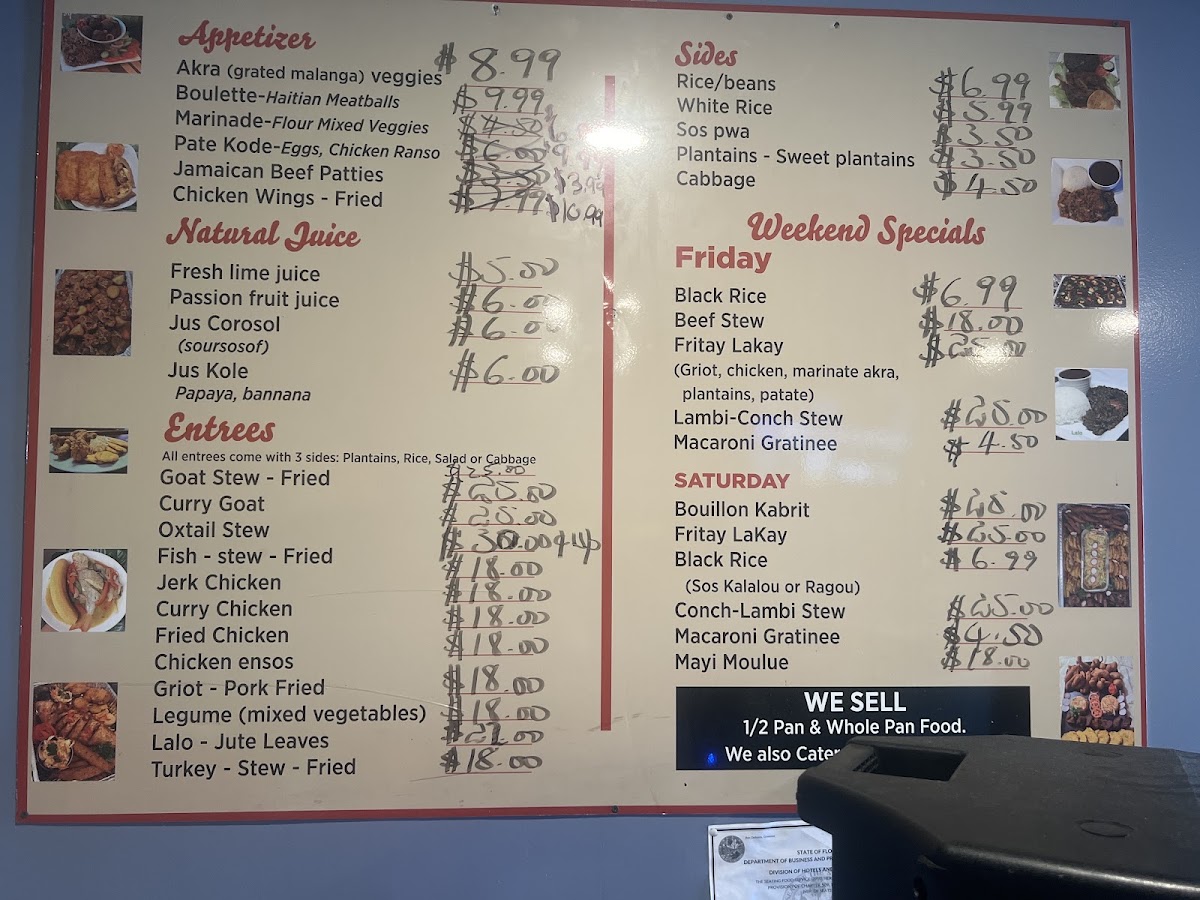 Appetizer
Akra (grated malanga) veggies $8.99
Boulette-Haitian Meatballs $9.99
Marinade-Flour Mixed Veggies $4.50
Pate Kode-Eggs, Chicken Ranso $6.00 $9.99
Jamaican Beef Patties $3.50 $3.99
Chicken Wings - Fried $7.99 $10.99
Natural Juice
Fresh lime juice $5.00
Passion fruit juice $6.00
Jus Corosol $6.00
(soursosof)
Jus Kole $6.00
Papaya, bannana
Entrees
All entrees come with 3 sides: Plantains, Rice, Salad or Cabbage
Goat Stew - Fried $25.00
Curry Goat $25.00
Oxtail Stew $25.00
Fish - stew - Fried $30.00 & up
Jerk Chicken $18.00
Curry Chicken $18.00
Fried Chicken $18.00
Chicken ensos $18.00
Griot - Pork Fried $18.00
Legume (mixed vegetables) $18.00
Lalo - Jute Leaves $21.00
Turkey - Stew - Fried $18.00
Sides
Rice/beans $6.99
White Rice $5.99
Sos pwa $3.50
Plantains - Sweet plantains $3.50
Cabbage $4.50
Weekend Specials
Friday
Black Rice $6.99
Beef Stew $18.00
Fritay Lakay $25.00
(Griot, chicken, marinate akra,
plantains, patate)
Lambi-Conch Stew $25.00
Macaroni Gratinee $4.50
SATURDAY
Bouillon Kabrit $25.00
Fritay LaKay $25.00
Black Rice $6.99
(Sos Kalalou or Ragou)
Conch-Lambi Stew $25.00
Macaroni Gratinee $4.50
Mayi Moulue $18.00
WE SELL
1/2 Pan & Whole Pan Food.
We also Cater
Lalo
STATE OF FLO
DEPARTMENT OF BUSINESS AND PR
DIVISION OF HOTELS AN